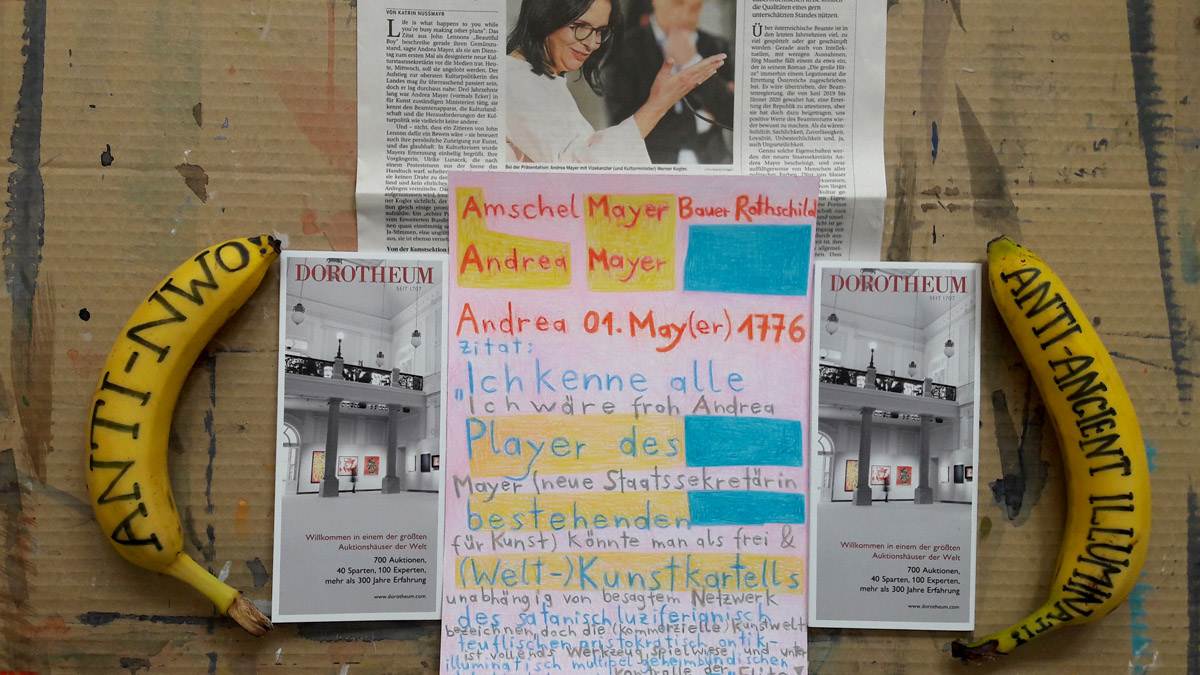 VON KATRIN NUSSMAYR
Life is what happens to you while
you're busy making other plans": Das
Zitat aus John Lennons „Beautiful
Boy" beschreibe gerade ihren Gemützu-
stand, sagte Andrea Mayer, als sie am Diens-
tag zum ersten Mal als designierte neue Kul-
turstaatssekretärin vor die Medien trat. Heu-
te, Mittwoch, soll sie angelobt werden. Der
Aufstieg zur obersten Kulturpolitikerin des
Landes mag ihr überraschend passiert sein,
doch er lag durchaus nahe: Drei Jahrzehnte
lang war Andrea Mayer (vormals Ecker) in
für Kunst zuständigen Ministerien tätig, sie
kennt den Beamtenapparat, die Kulturland-
schaft und die Herausforderungen der Kul-
turpolitik wie vielleicht keine andere.
Und – nicht, dass ein Zitieren von John
Lennon dafür ein Beweis wäre – sie bewegt
auch ihre persönliche Zuneigung zur Kunst,
und das glaubhaft: In Kulturkreisen wurde
Mayers Ernennung einhellig begrüßt. Ihre
Vorgängerin, Ulrike Lunacek, die nach
Von der Kunstsektion
Bei der Präsentation: Andrea Mayer mit Vizekanzler (und Kulturminister) Werner Kogler.
die Qualitäten eines gern
unterschätzten Standes nützen.
Über österreichische Beamte ist in
den letzten Jahrzehnten viel, zu
viel gespöttelt oder gar geschimpft
worden. Gerade auch von Intellek-
tuellen, mit wenigen Ausnahmen,
Jörg Mauthe fällt einem da etwa ein,
der in seinem Roman „Die große Hit-
ze" immerhin einem Legationsrat die
Errettung Österreichs zugeschrieben
hat. Es wäre übertrieben, der Beam-
tenregierung, die von Juni 2019 bis
Jänner 2020 gewaltet hat, eine Erret-
tung der Republik zu attestieren, aber
sie hat doch dazu beigetragen, uns
positive Werte des Beamtentums wie-
der bewusst zu machen. Als da wären:
Solidität, Sachlichkeit, Zuverlässigkeit,
Loyalität, Unbestechlichkeit und, ja,
auch Unparteilichkeit.
Genau solche Eigenschaften wer-
den der neuen Staatssekretärin An-
drea Mayer bescheinigt, und zwar
Amschel Mayer Bauer Rothschild
Andrea Mayer
Andrea 01. May(er) 1776
Zitat:
„Ich kenne alle
Ich wäre froh Andrea
Player des
Mayer (neue Staatssekretärin
bestehenden
für Kunst) könnte man als frei &
(Welt-)Kunstkartells
unabhängig von besagtem Netzwerk
des satanisch, luziferianisch,
bezeichnen, doch die (kommerzielle) Kunstwelt
teuflischen aristokratisch antik-
ist vollends Werkzeug, spielwiese und unter
illuminatisch multipel geheimbündischen
kontrolle der „Elite"
ANTI-NWO!!
DOROTHEUM
SEIT 1707
Willkommen in einem der größten
Auktionshäuser der Welt
700 Auktionen,
40 Sparten, 100 Experten,
mehr als 300 Jahre Erfahrung
www.dorotheum.com
DOROTHEUM
SEIT 1707
Willkommen in einem der größten
Auktionshäuser der Welt
700 Auktionen,
40 Sparten, 100 Experten,
mehr als 300 Jahre Erfahrung
www.dorotheum.com
ANTI-ANCIENT ILLUMINATI!!